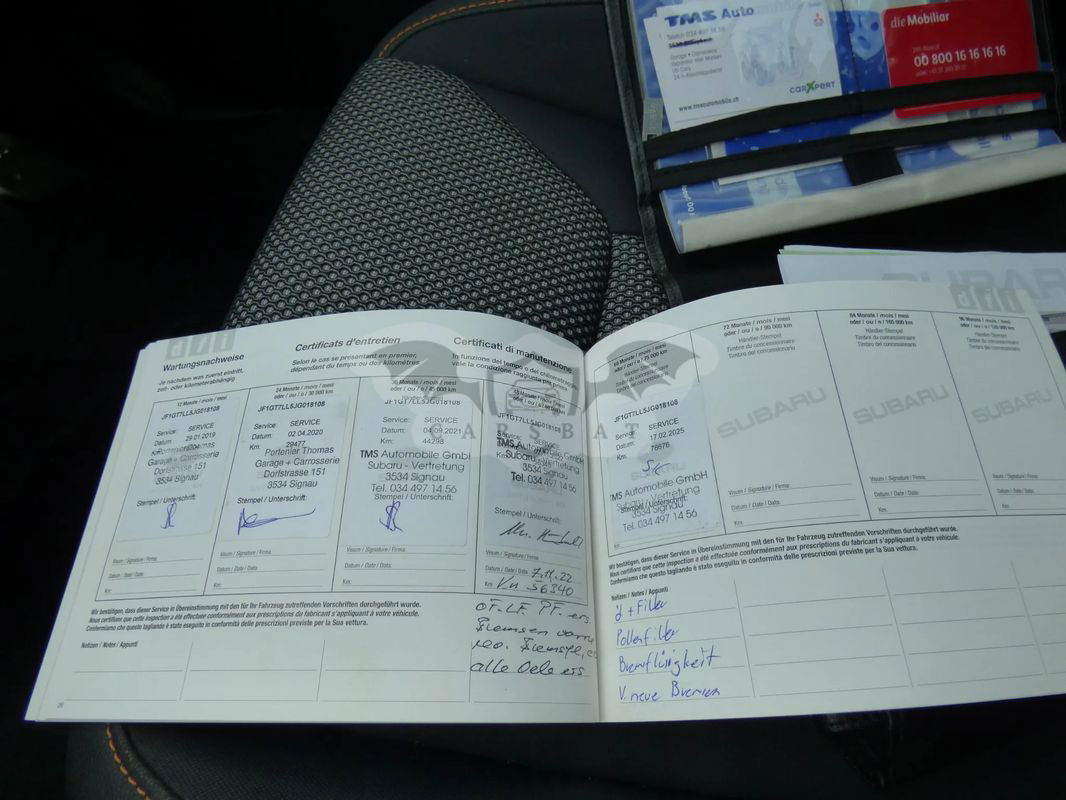 TMS Auto
Telefon 034 497 14 56
www.tmsautomobile.ch
carXpert
die Mobiliar
00 800 16 16 16 16
SUBARU
Wartungsnachweise
Je nachdem was zuerst eintritt,
zeit- oder kilometerabhängig
Certificats d'entretien
Selon le cas se présentant en premier,
dépendant du temps ou des kilomètres
Certificati di manutenzione
In funzione del tempo o del chilometraggio,
vale la condizione raggiunta per prima
12 Monate / mois / mesi
JF1GT7LL5JG018108
Service: SERVICE
Datum: 29.01.2019
Km:
Garage + Carrosserie
Dorfstrasse 151
3534 Signau
Stempel / Unterschrift:
Visum / Signature / Firma:
Datum / Date / Data:
Km:
24 Monate / mois / mesi
oder / ou / o / 30 000 km
JF1GT7LL5JG018108
Service: SERVICE
Datum: 02.04.2020
Km: 29477
Portenier Thomas
Garage + Carrosserie
Dorfstrasse 151
3534 Signau
Stempel / Unterschrift:
Visum / Signature / Firma:
Datum / Date / Data:
Km:
36 Monate / mois / mesi
oder / ou / o / 45 000 km
JF1GT7LL5JG018108
Service: SERVICE
Datum: 04.09.2021
Km: 44298
TMS Automobile GmbH
Subaru - Vertretung
3534 Signau
Tel. 034 497 14 56
Stempel / Unterschrift:
Visum / Signature / Firma:
Datum / Date / Data:
Km:
JF1GT7LL5JG018108
Service: SERVICE
TMS Automobile GmbH
Subaru - Vertretung
3534 Signau
Tel. 034 497 14 56
Stempel / Unterschrift:
Visum / Signature / Firma:
Datum / Date / Data: 7.11.22
Km: 56340
Wir bestätigen, dass dieser Service in Übereinstimmung mit den für Ihr Fahrzeug zutreffenden Vorschriften durchgeführt wurde.
Nous certifions que cette inspection a été effectuée conformément aux prescriptions du fabricant s'appliquant à votre véhicule.
Confermiamo che questo tagliando è stato eseguito in conformità delle prescrizioni previste per la Sua vettura.
Notizen / Notes / Appunti
alle Oele ers
26
60 Monate / mois / mesi
oder / ou / o / 75 000 km
JF1GT7LL5JG018108
Service: SERVICE
Datum: 17.02.2025
Km: 78676
TMS Automobile GmbH
Subaru - Vertretung
3534 Signau
Tel. 034 497 14 56
Visum / Signature / Firma:
Datum / Date / Data:
Km:
72 Monate / mois / mesi
oder / ou / o / 90 000 km
Händler-Stempel
Timbre du concessionnaire
Timbro del concessionario
SUBARU
Visum / Signature / Firma:
Datum / Date / Data:
Km:
84 Monate / mois / mesi
oder / ou / o / 105 000 km
Händler-Stempel
Timbre du concessionnaire
Timbro del concessionario
SUBARU
Visum / Signature / Firma:
Datum / Date / Data:
Km:
96 Monate / mois / mesi
oder / ou / o / 120 000 km
Händler-Stempel
Timbre du concessionnaire
Timbro del concessionario
SUBARU
Visum / Signature / Firma:
Datum / Date / Data:
Km:
Wir bestätigen, dass dieser Service in Übereinstimmung mit den für Ihr Fahrzeug zutreffenden Vorschriften durchgeführt wurde.
Nous certifions que cette inspection a été effectuée conformément aux prescriptions du fabricant s'appliquant à votre véhicule.
Confermiamo che questo tagliando è stato eseguito in conformità delle prescrizioni previste per la Sua vettura.
Notizen / Notes / Appunti
Pollenfilter
Bremflüssigkeit
V. neue Bremsen
CARSBAT